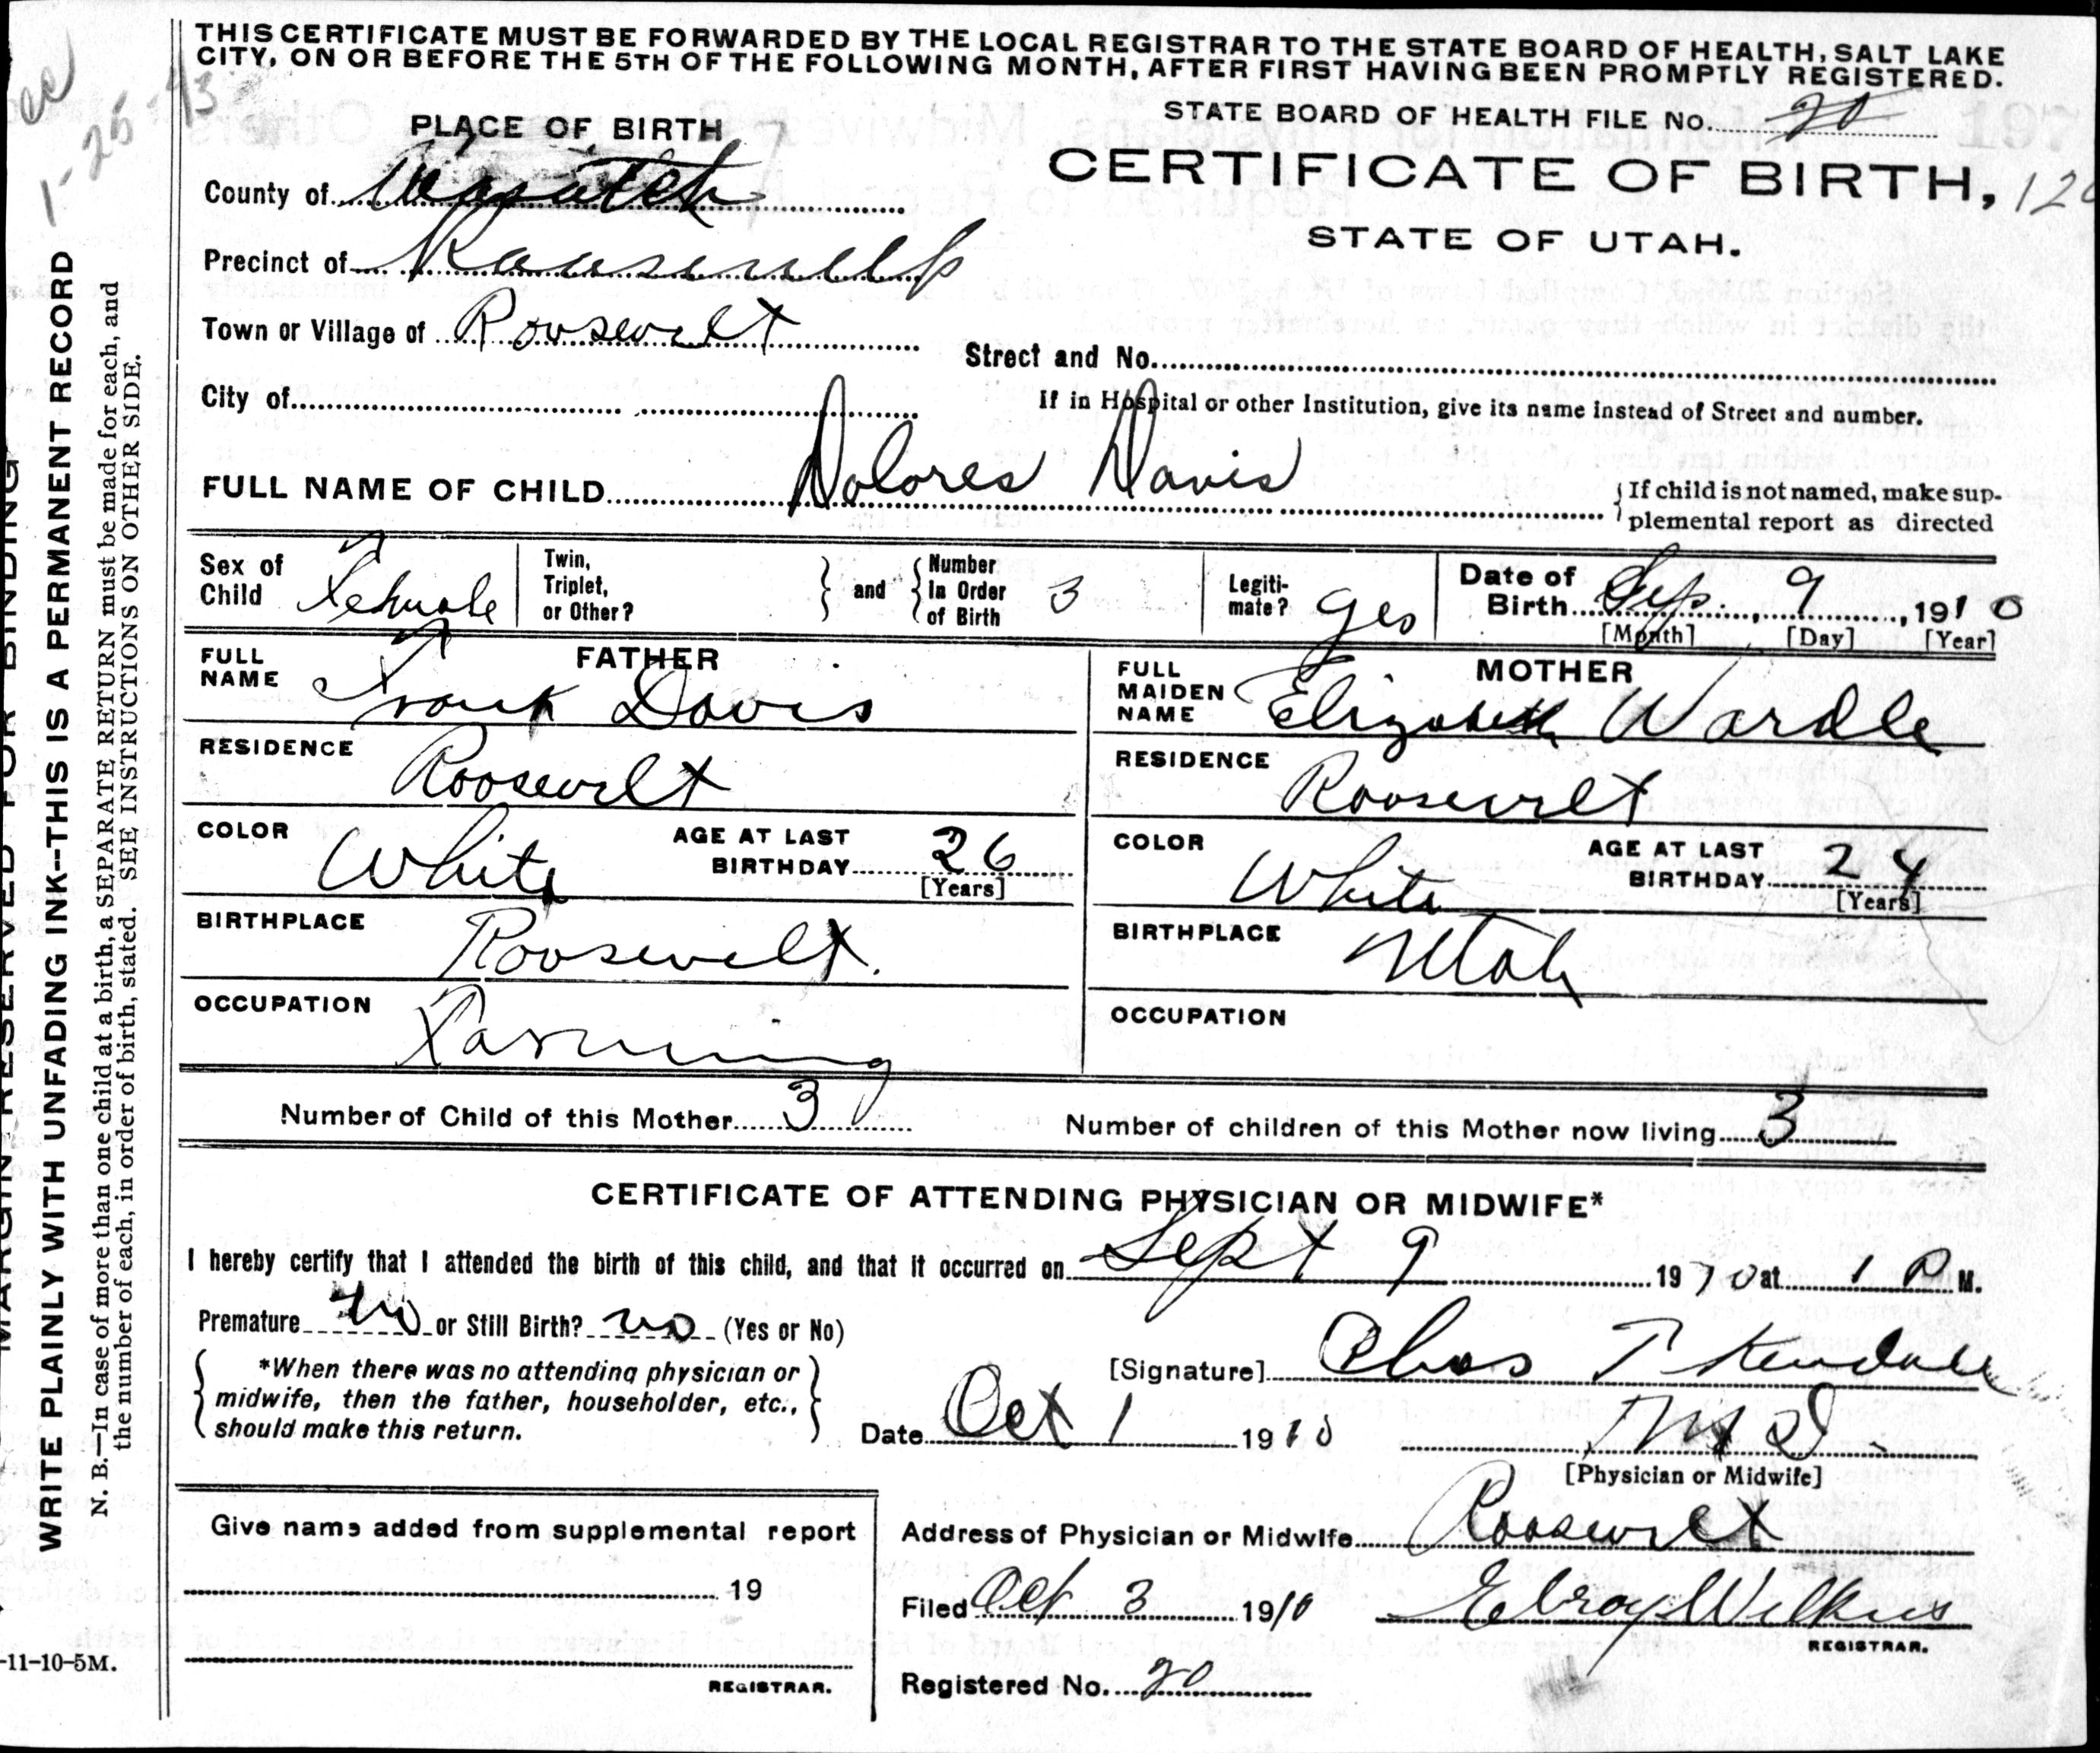 THIS CERTIFICATE MUST BE FORWARDED BY THE LOCAL REGISTRAR TO THE STATE BOARD OF HEALTH, SALT LAKE
CITY, ON OR BEFORE THE 5TH OF THE FOLLOWING MONTH, AFTER FIRST HAVING BEEN PROMPTLY REGISTERED.
1-25-43
STATE BOARD OF HEALTH FILE No. 20
PLACE OF BIRTH
CERTIFICATE OF BIRTH,
STATE OF UTAH.
County of Wasatch
Precinct of Roosevelt
Town or Village of Roosevelt
Street and No.
City of
If in Hospital or other Institution, give its name instead of Street and number.
FULL NAME OF CHILD Dolores Davis
If child is not named, make sup-
plemental report as directed
Sex of Child Female
Twin, Triplet, or Other? and Number In Order of Birth 3
Legiti-mate? yes
Date of Birth Sep. 9, 1910
[Month] [Day] [Year]
FATHER
FULL NAME Frank Davis
RESIDENCE Roosevelt
COLOR White AGE AT LAST BIRTHDAY 26
[Years]
BIRTHPLACE Roosevelt.
OCCUPATION Farming
MOTHER
FULL MAIDEN NAME Elizabeth Wardle
RESIDENCE Roosevelt
COLOR White AGE AT LAST BIRTHDAY 24
[Years]
BIRTHPLACE Utah
OCCUPATION
Number of Child of this Mother 3 Number of children of this Mother now living 3
CERTIFICATE OF ATTENDING PHYSICIAN OR MIDWIFE*
I hereby certify that I attended the birth of this child, and that it occurred on Sept 9 1910 at 1 P M.
Premature no or Still Birth? no (Yes or No)
*When there was no attending physician or
midwife, then the father, householder, etc.,
should make this return.
[Signature] Chas T Kendall
Date Oct 1 1910 M D.
[Physician or Midwife]
Give name added from supplemental report
19
REGISTRAR.
Address of Physician or Midwife Roosevelt
Filed Oct 3 1910 Elroy Wilkins
REGISTRAR.
Registered No. 20
-11-10-5M.
MARGIN RESERVED FOR BINDING
WRITE PLAINLY WITH UNFADING INK--THIS IS A PERMANENT RECORD
N. B.—In case of more than one child at a birth, a SEPARATE RETURN must be made for each, and
the number of each, in order of birth, stated. SEE INSTRUCTIONS ON OTHER SIDE.